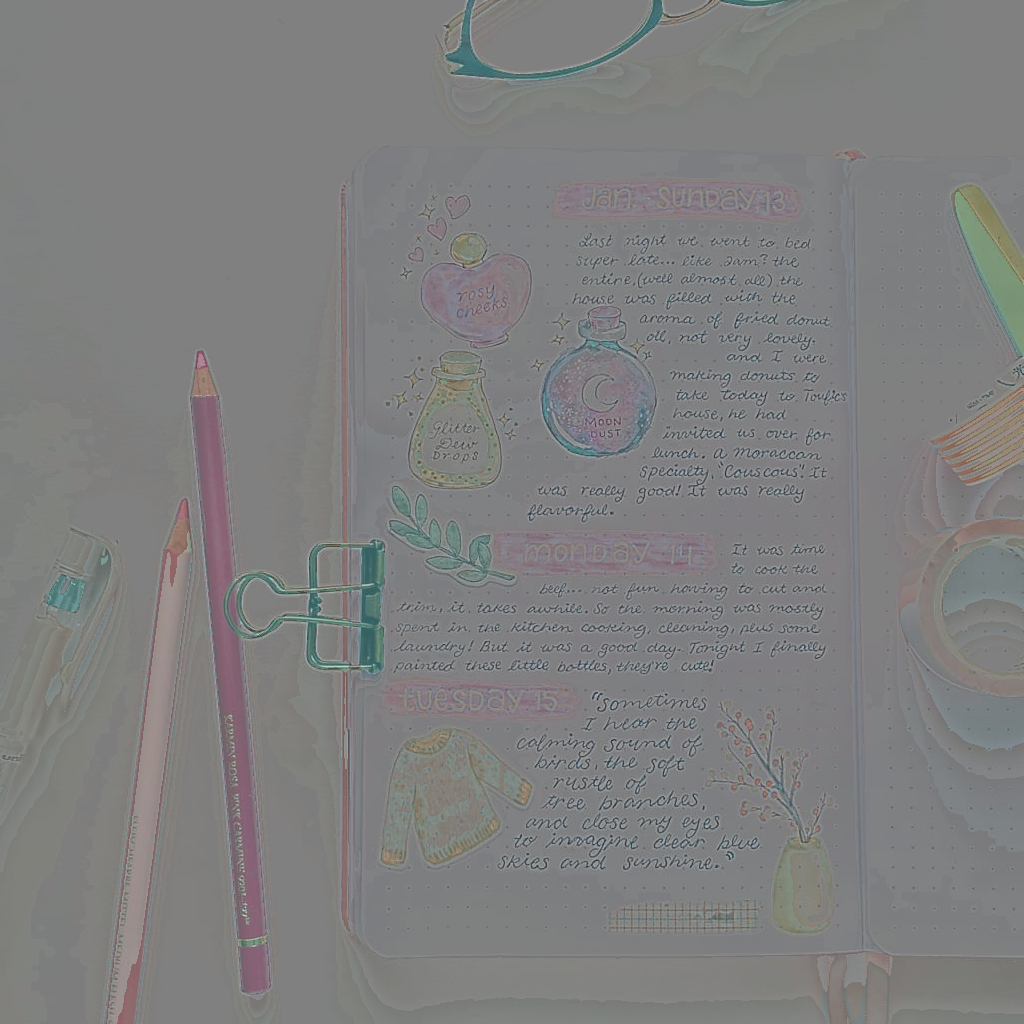 Jan. Sunday 13
Last night we went to bed
super late... like 2am? the
entire, (well almost all) the
house was filled with the
aroma of fried donut
oil, not very lovely.
and I were
making donuts to
take today to Toufics
house, he had
invited us over for
lunch. A Moraccan
specialty, "Couscous". It
was really good! It was really
flavorful.
rosy
cheeks
Moon
Dust
Glitter
Dew
Drops
monday 14
It was time
to cook the
beef... not fun having to cut and
trim, it takes awhile. So the morning was mostly
spent in the kitchen cooking, cleaning, plus some
laundry! But it was a good day. Tonight I finally
painted these little bottles, they're cute!
tuesday 15
"Sometimes
I hear the
calming sound of
birds, the soft
rustle of
tree branches,
and close my eyes
to imagine clear blue
skies and sunshine."